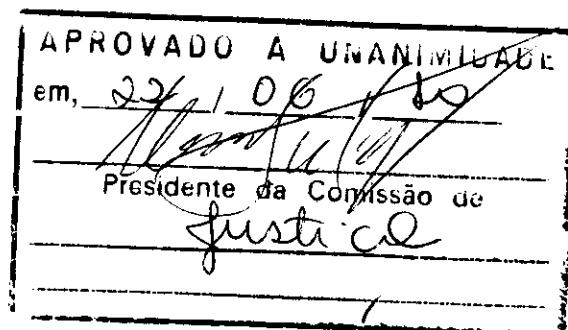 APROVADO A UNANIMIDADE
em, 22 / 06
Presidente da Comissão de
Justiça